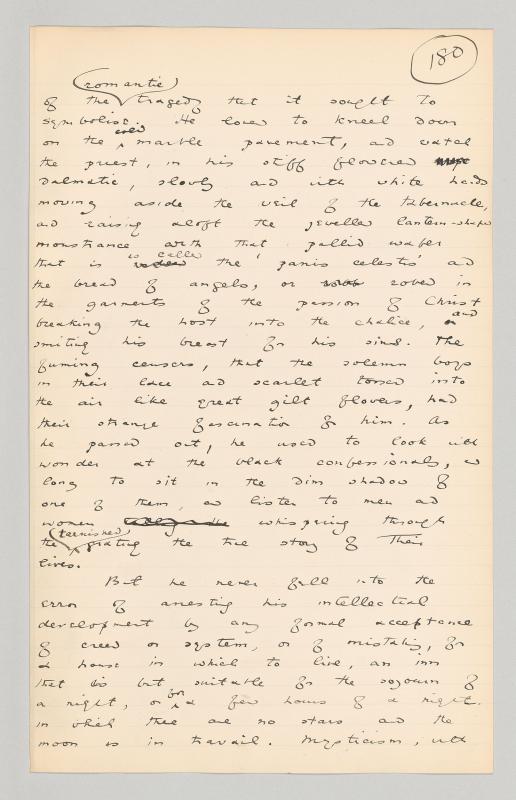 180
romantic
of the tragedy that it sought to
symbolise. He loved to kneel down
cold
on the marble pavement, and watch
the priest, in his stiff flowered
Dalmatic, slowly and with white hands
moving aside the veil of the tabernacle,
and raising aloft the jewelled lantern-shaped
monstrance with that pallid wafer
is called
that is the 'panis celestis' and
the bread of angels, or robed in
the garments of the passion of Christ
and
breaking the host into the chalice,
smiting his breast for his sins. The
fuming censers, that the solemn boys
in their lace and scarlet tossed into
the air like great gilt flowers, had
their strange fascination for him. As
he passed out, he used to look with
wonder at the black confessionals, and
long to sit in the dim shadow of
one of them, and listen to men and
women whispering through
tarnished
the grating the true story of their
lives.
But he never fell into the
error of arresting his intellectual
development by any formal acceptance
of creed or system, or of mistaking, for
a house in which to live, an inn
that is but suitable for the sojourn of
for
a night, or a few hours of a night
in which there are no stars and the
moon is in travail. Mysticism, with